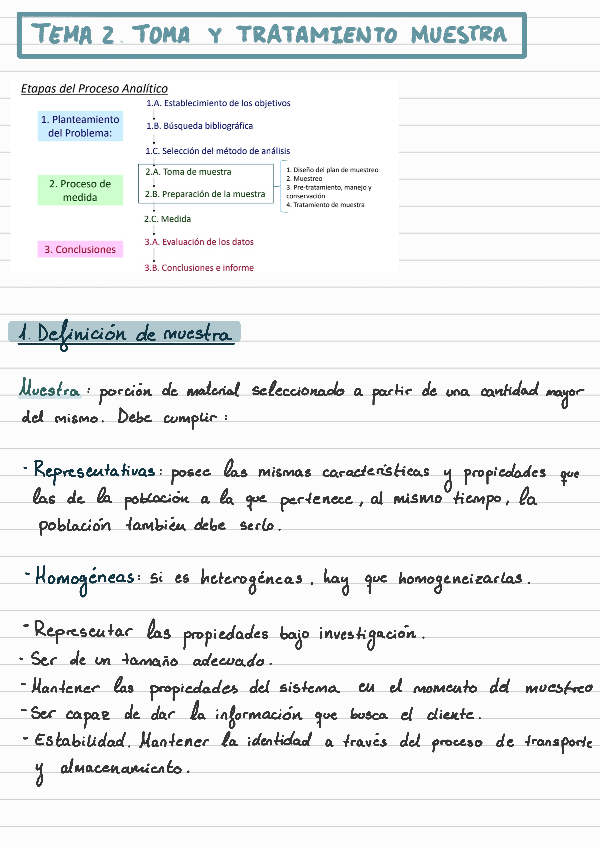 TEMA 2. TOMA Y TRATAMIENTO MUESTRA
Etapas del Proceso Analítico
1. Planteamiento
del Problema:
1.A. Establecimiento de los objetivos
1.B. Búsqueda bibliográfica
1.C. Selección del método de análisis
2. Proceso de
medida
2.A. Toma de muestra
2.B. Preparación de la muestra
1. Diseño del plan de muestreo
2. Muestreo
3. Pre-tratamiento, manejo y
conservación
4. Tratamiento de muestra
2.C. Medida
3. Conclusiones
3.A. Evaluación de los datos
3.B. Conclusiones e informe
1. Definición de muestra
Muestra : porción de material seleccionado a partir de una cantidad mayor
del mismo. Debe cumplir :
- Representativas: posee las mismas características y propiedades que
las de la población a la que pertenece, al mismo tiempo, la
población también debe serlo.
- Homogéneas: si es heterogéneas, hay que homogeneizarlas.
- Representar las propiedades bajo investigación.
- Ser de un tamaño adecuado.
- Mantener las propiedades del sistema en el momento del muestreo
- Ser capaz de dar la información que busca el cliente.
- Estabilidad. Mantener la identidad a través del proceso de transporte
y almacenamiento.